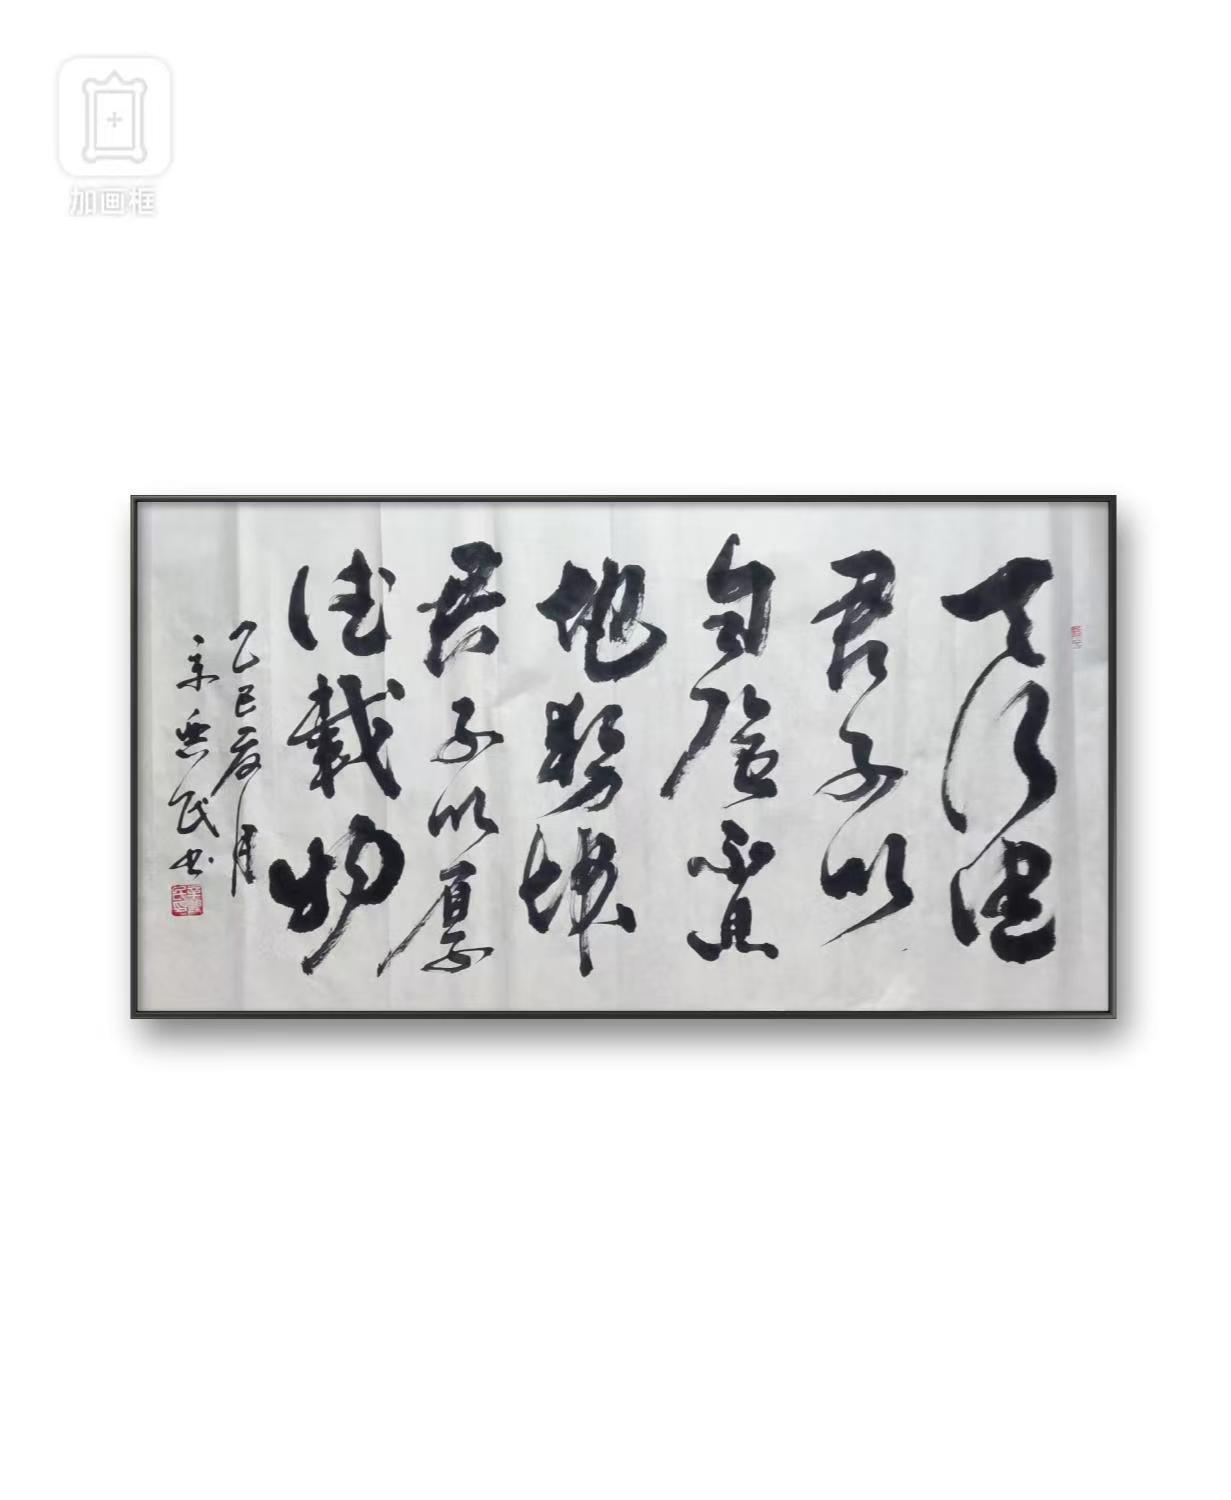 加画框
天行健
君子以
自强不息
地势坤
君子以厚
德載物
乙巳夏月
民书